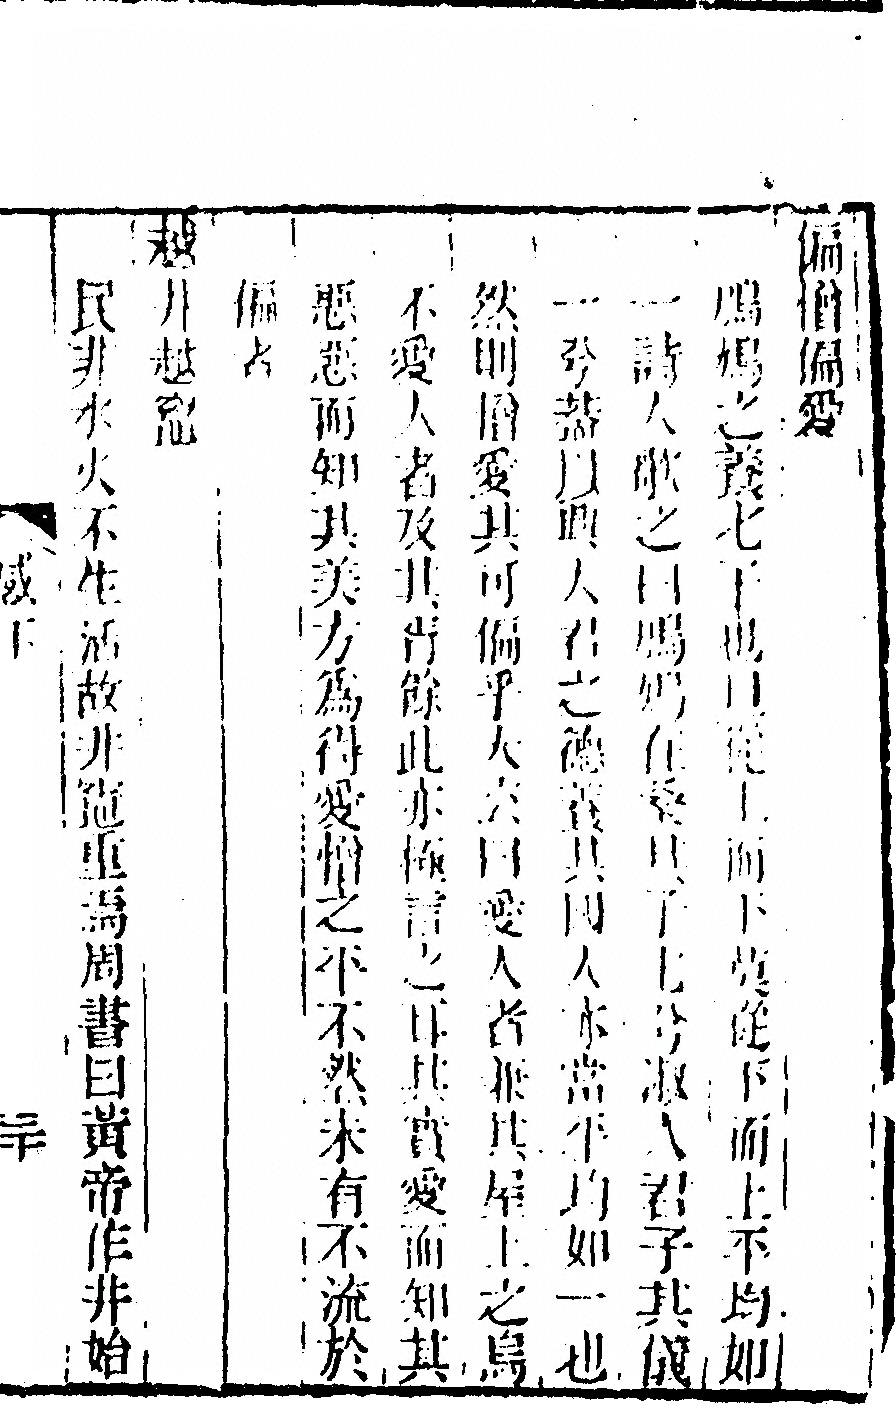 偏憎偏愛
鳲鳩之養七子也日從上而下莫從下而上平均如
一詩人歌之曰鳲鳩在桑其子七兮淑人君子其儀
一兮蓋以興人君之德養其國人亦當平均如一也
然則憎愛其可偏乎大公曰愛人者兼其屋上之烏
不愛人者及其胥餘此亦極言之耳其實愛而知其
惡惡而知其美方為得愛憎之平不然未有不流於
偏者
越井越竈
民非水火不生活故井竈重焉周書曰黃帝作井始
感下
三十